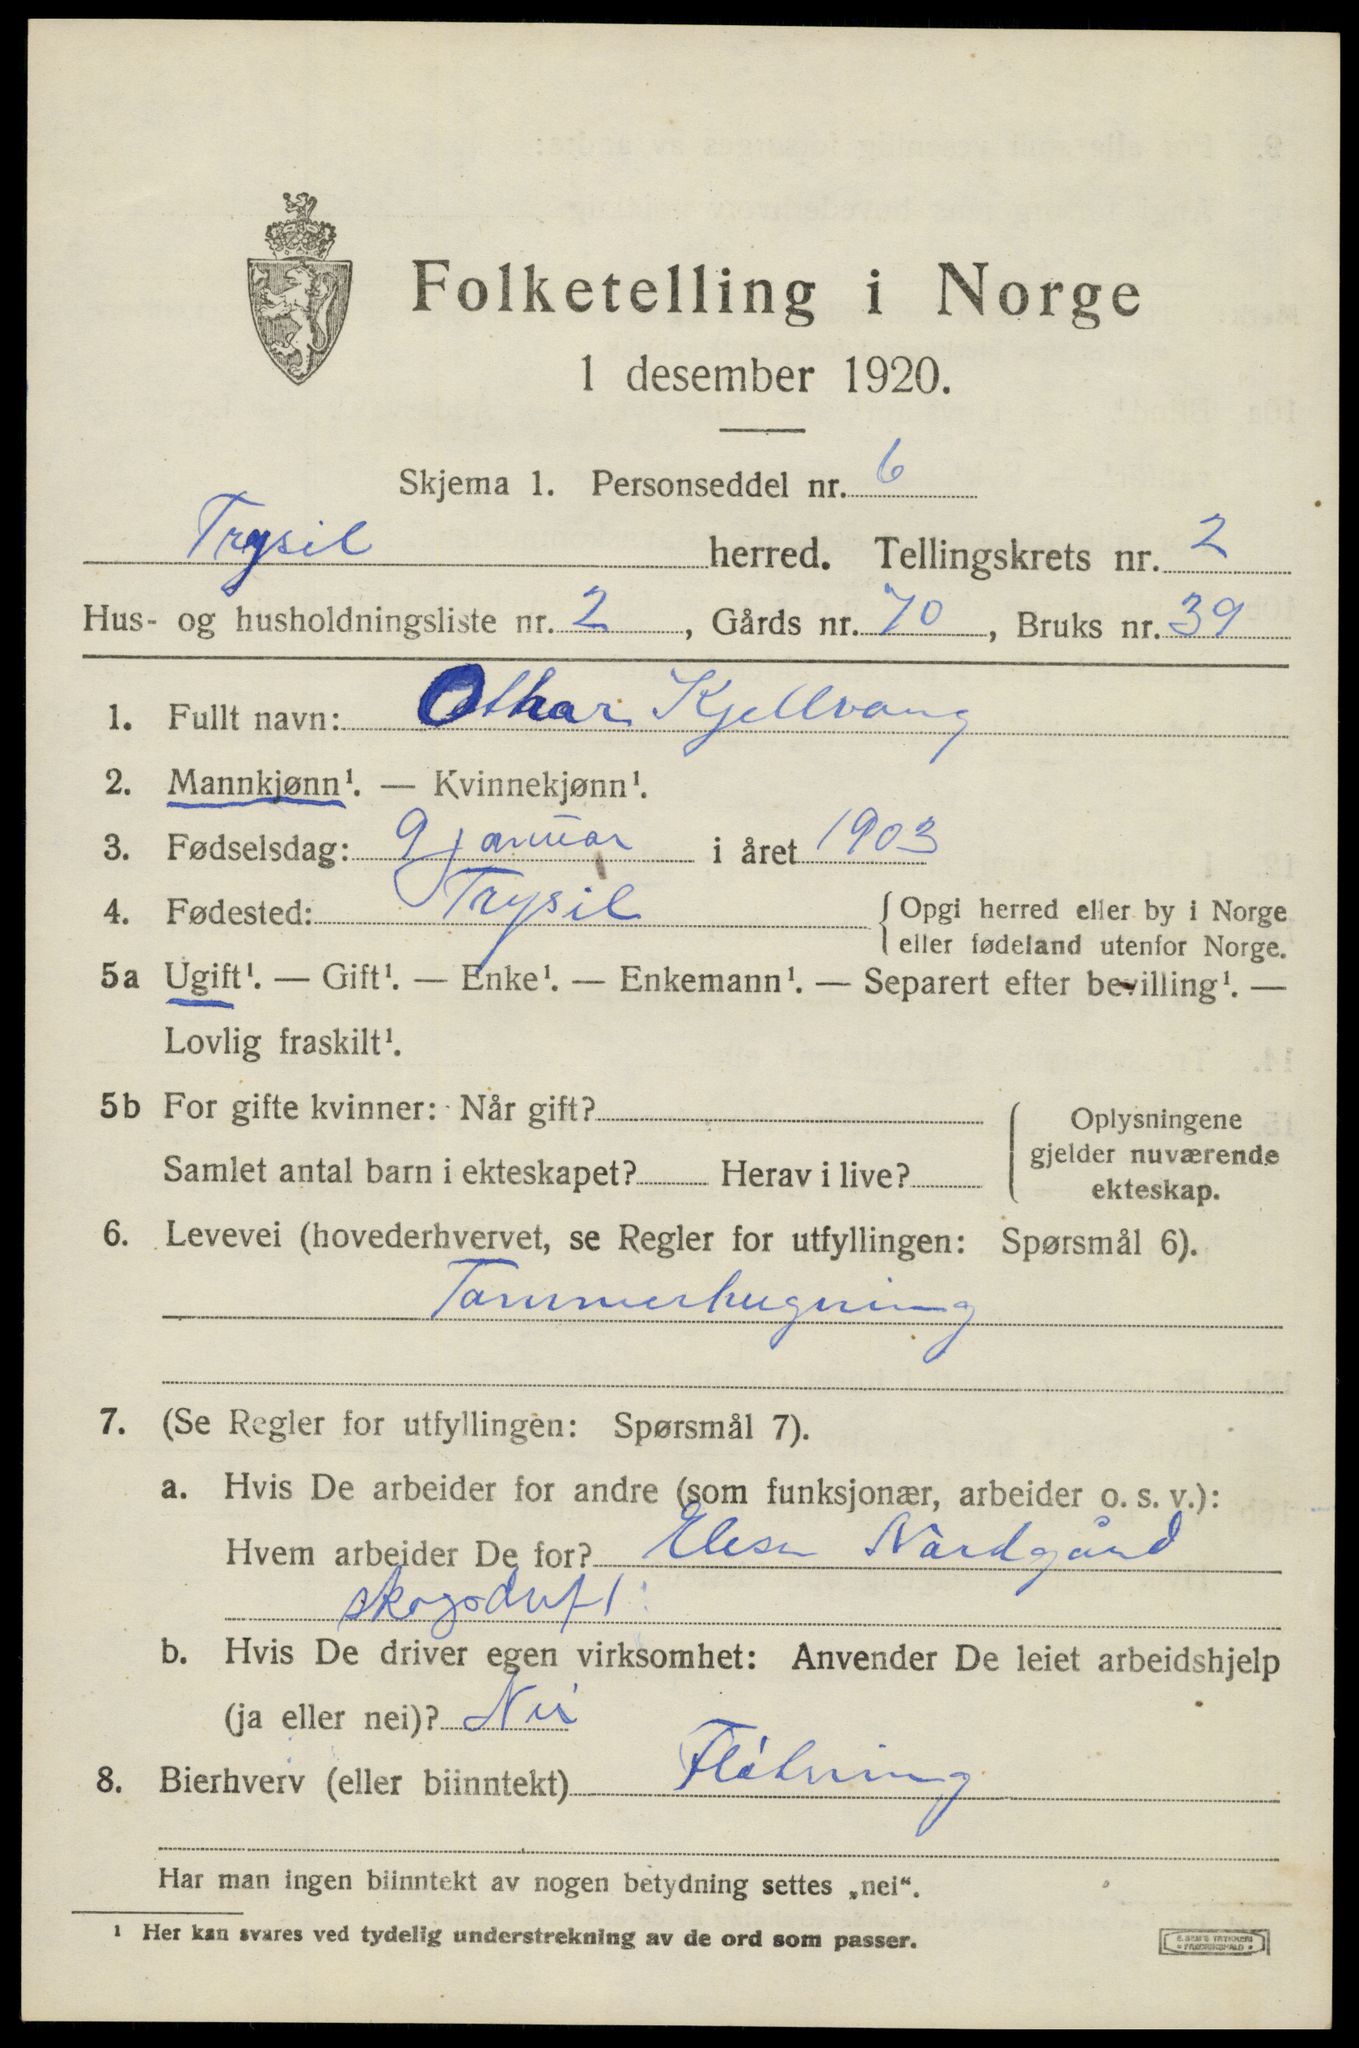 Folketelling i Norge
1 desember 1920.
Skjema 1. Personseddel nr. 6
Trysil herred. Tellingskrets nr. 2
Hus- og husholdningsliste nr. 2, Gårds nr. 70, Bruks nr. 39
1. Fullt navn: Othar Kjellvang
2. Mannkjønn¹. — Kvinnekjønn¹.
3. Fødselsdag: 9 januar i året 1903
4. Fødested: Trysil { Opgi herred eller by i Norge
eller fødeland utenfor Norge.
5a Ugift¹. — Gift¹. — Enke¹. — Enkemann¹. — Separert efter bevilling¹. —
Lovlig fraskilt¹.
5b For gifte kvinner: Når gift?
Samlet antal barn i ekteskapet? Herav i live?
Oplysningene
gjelder nuværende
ekteskap.
6. Levevei (hovederhvervet, se Regler for utfyllingen: Spørsmål 6).
Tømmerhugning
7. (Se Regler for utfyllingen: Spørsmål 7).
a. Hvis De arbeider for andre (som funksjonær, arbeider o. s. v.):
Hvem arbeider De for? Nordgård
skogsdrift
b. Hvis De driver egen virksomhet: Anvender De leiet arbeidshjelp
(ja eller nei)? Nei
8. Bierhverv (eller biinntekt) Fløtning
Har man ingen biinntekt av nogen betydning settes „nei“.
¹ Her kan svares ved tydelig understrekning av de ord som passer.